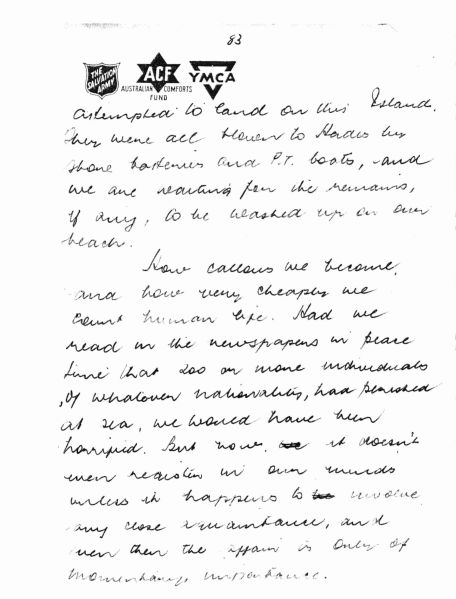 83
THE SALVATION ARMY
ACF
AUSTRALIAN COMFORTS FUND
YMCA
attempted to land on this Island.
They were all blown to Hades by
shore batteries and P.T. boats, and
we are waiting for the remains,
if any, to be washed up on our
beach.
How callous we become,
and how very cheaply we
count human life. Had we
read in the newspapers in peace
time that 200 or more individuals
, of whatever nationality, had perished
at sea, we would have been
horrified. But now, it doesn't
even register in our minds
unless it happens to involve
any close acquaintance, and
even then the affair is only of
momentary importance.